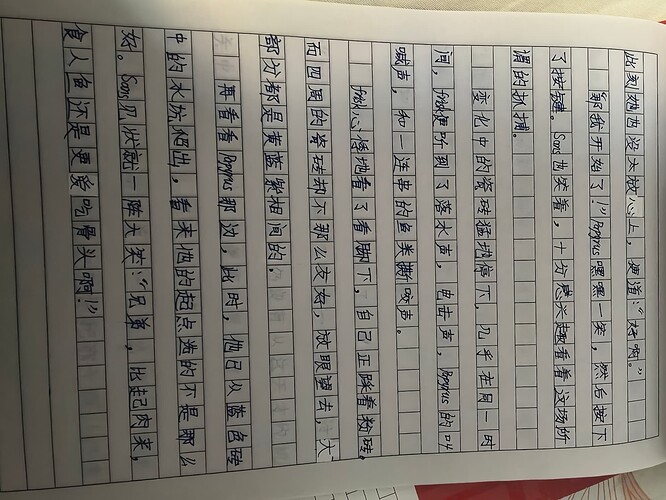 此刻她也没太放心上，便道：“好啊。”
那我开始了！”Papyrus嘿嘿一笑，然后按下
了按键。Sans也笑着，十分感兴趣看着这场所
谓的抓捕。
变化中的瓷砖猛地停下，几乎在同一时
间，frisk便听到了落水声，电击声，Papyrus的叫
喊声，和一连串的鱼类撕咬声。
frisk心悸地看了看脚下，自己正踩着粉砖。
而四周的瓷砖却不那么友好，放眼望去，大
部分都是黄蓝紧相间的。
再看看Papyrus那边，此时，他已从蓝色砖
中的水放爬出，看来他的起点选的不是那么
好。Sans见状就一阵大笑：“兄弟，比起肉来，
食人鱼还是更爱吃骨头啊！”